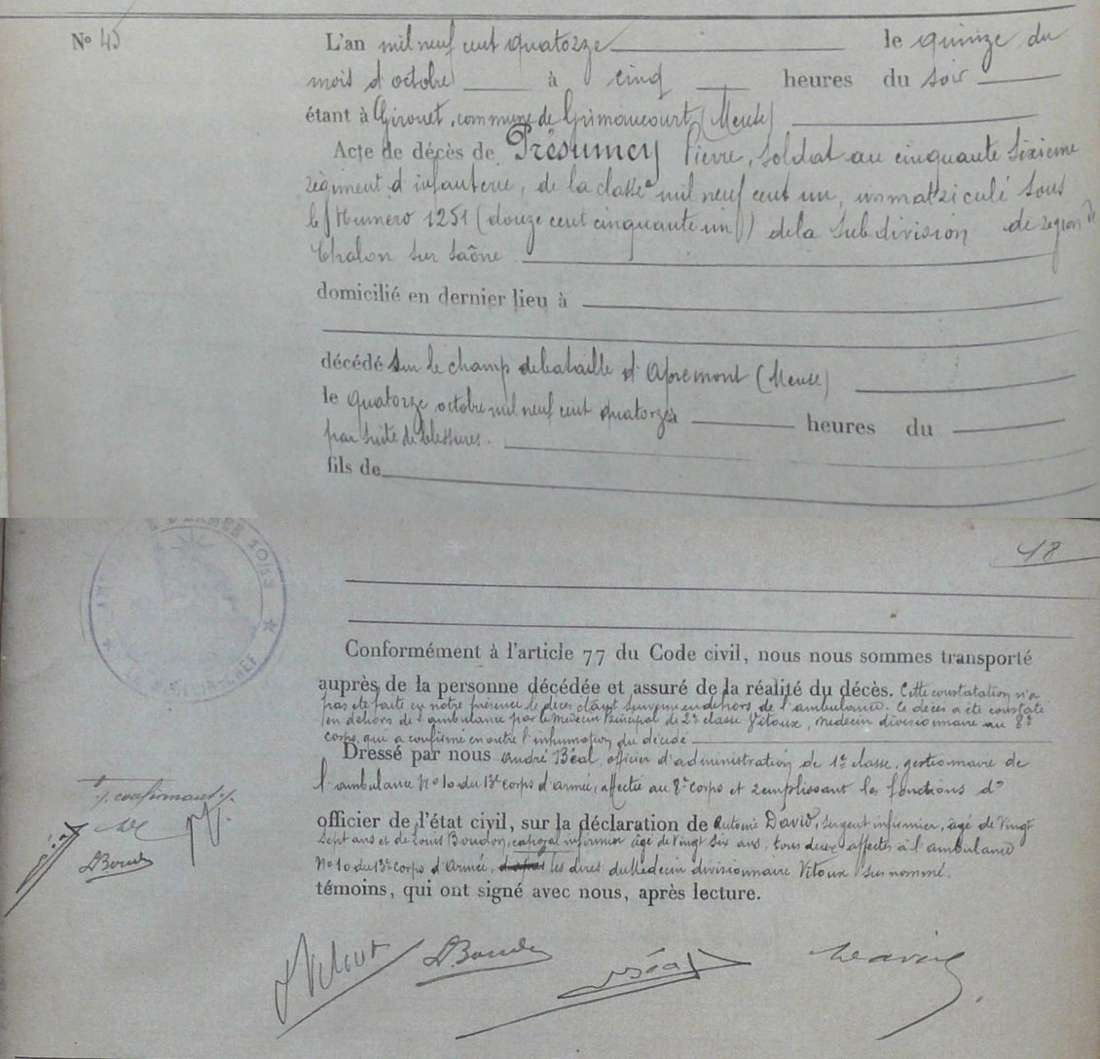 N° 45
L'an mil neuf cent quatorze le quinze du
mois d'octobre à cinq heures du soir
étant à Girouet, commune de Grimaucourt (Meuse)
Acte de décès de Présumey Pierre, soldat au cinquante sixième
régiment d'infanterie, de la classe mil neuf cent un, immatriculé sous
le Numéro 1251 (douze cent cinquante un) de la subdivision de région de
Chalon sur Saône
domicilié en dernier lieu à
décédé sur le champ de bataille d'Apremont (Meuse)
le quatorze octobre mil neuf cent quatorze à heures du
par suite de blessures.
fils de
48
Conformément à l'article 77 du Code civil, nous nous sommes transporté
auprès de la personne décédée et assuré de la réalité du décès. Cette constatation n'a
pas été faite en notre présence le décès étant survenu en dehors de l'ambulance. Ce décès a été constaté
en dehors de l'ambulance par le Médecin Principal de 2e classe Vitoux, médecin divisionnaire au 8e
corps, qui a confirmé en outre l'inhumation du décédé
Dressé par nous André Béal, officier d'administration de 1e classe, gestionnaire de
l'ambulance N° 10 du 13e corps d'armée, affectée au 8e corps et remplissant les fonctions d'
officier de l'état civil, sur la déclaration de Antoine David, sergent infirmier, âgé de vingt
sept ans et de Louis Boudon, caporal infirmier âgé de vingt six ans, tous deux affectés à l'ambulance
N° 10 du 13e corps d'Armée, d'après les dires du Médecin divisionnaire Vitoux sus nommé.
témoins, qui ont signé avec nous, après lecture.
confirmant
Vitoux Boudon Béal David